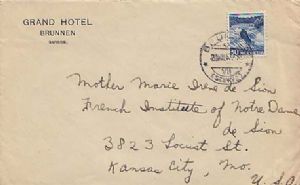 GRAND HOTEL
BRUNNEN
Mother Marie Irene de Sion
French Institute of Notre Dame
de Sion
3823 Locust St.
Kansas City, Mo.
U.S.A.